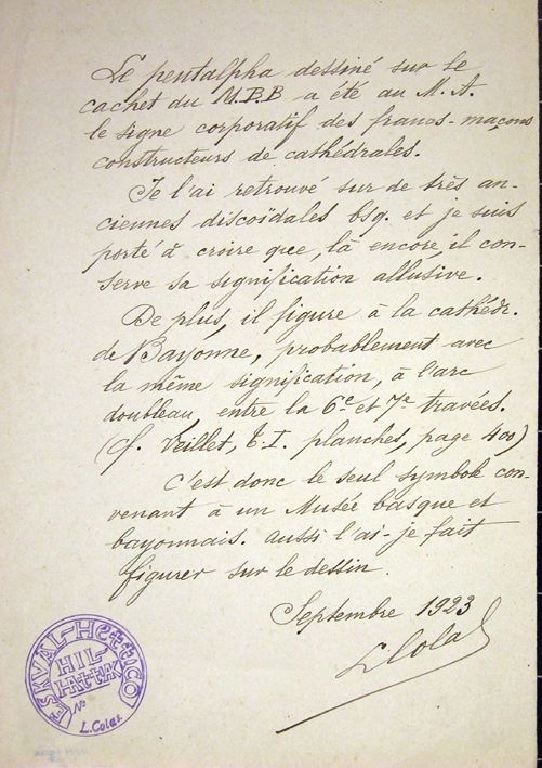 Le pentalpha dessiné sur le
cachet du M.B.B a été au M. A.
le signe corporatif des francs-maçons
constructeurs de cathédrales.
Je l'ai retrouvé sur de très an-
ciennes discoïdales bsq. et je suis
porté à croire que, là encore, il con-
serve sa signification allusive.
De plus, il figure à la cathédr.
de Bayonne, probablement avec
la même signification, à l'arc
doubleau, entre la 6e et 7e travées.
(cf. Veillet, T.I. planches, page 400)
C'est donc le seul symbole con-
venant à un Musée basque et
bayonnais. aussi l'ai-je fait
figurer sur le dessin.
Septembre 1923
L Colas
HIL
No
L. Colas